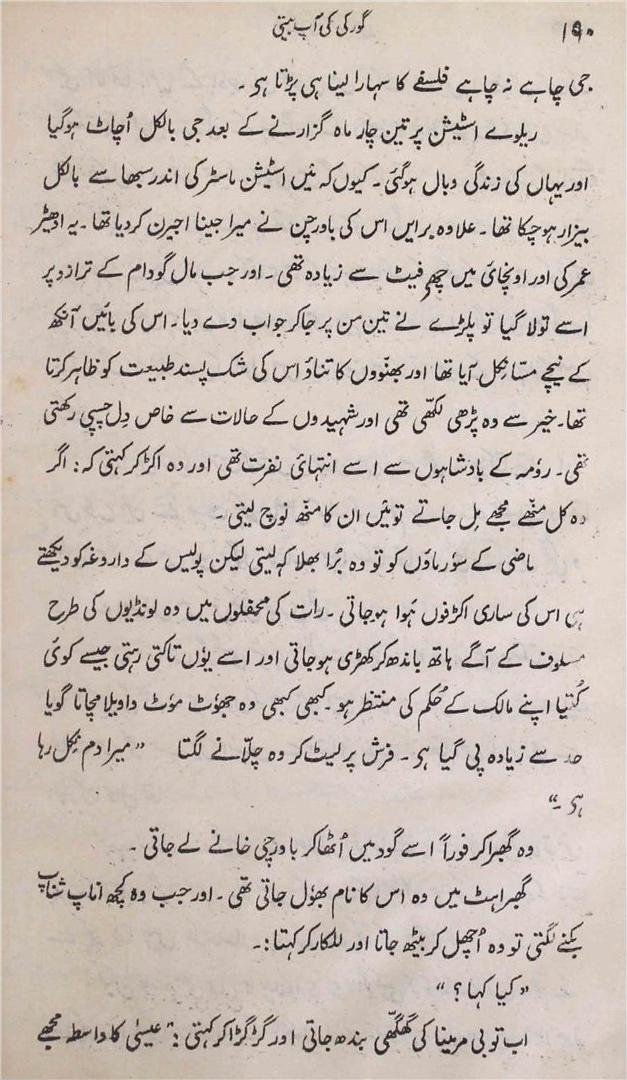 ۱۹۰
گورکی کی آپ بیتی
جی چاہے نہ چاہے فلسفے کا سہارا لینا ہی پڑتا ہی ۔
ریلوے اسٹیشن پر تین چار ماہ گزارنے کے بعد جی بالکل اُچاٹ ہوگیا
اور یہاں کی زندگی وبال ہوگئی ۔ کیوں کہ مَیں اسٹیشن ماسٹر کی اندر سبھا سے بالکل
بیزار ہوچکا تھا ۔ علاوہ برایں اس کی باورچن نے میرا جینا اجیرن کردیا تھا ۔ یہ ادھیڑ
عمر کی اور اونچائی میں چھ فیٹ سے زیادہ تھی ۔ اور جب مال گودام کے ترازو پر
اسے تولا گیا تو پلڑے نے تین من پر جاکر جواب دے دیا ۔ اس کی بائیں آنکھ
کے نیچے مسّا نکل آیا تھا اور بھنّووں کا تناؤ اس کی شک پسند طبیعت کو ظاہر کرتا
تھا ۔ خیر سے وہ پڑھی لکھّی تھی اور شہیدوں کے حالات سے خاص دِل چسپی رکھتی
تھی ۔ رومہ کے بادشاہوں سے اسے انتہائی نفرت تھی اور وہ اکڑ کر کہتی کہ : اگر
وہ کل منھے مجھے مِل جاتے تو مَیں ان کا منھ نوچ لیتی ۔
ماضی کے سورماؤں کو تو وہ بُرا بھلا کہ لیتی لیکن پولیس کے داروغہ کو دیکھتے
ہی اس کی ساری اکڑفوں ہَوا ہوجاتی ۔ رات کی محفلوں میں وہ لونڈیوں کی طرح
مسلوف کے آگے ہاتھ باندھ کر کھڑی ہوجاتی اور اسے یوٗں تاکتی رہتی جیسے کوئی
کُتیا اپنے مالک کے حُکم کی منتظر ہو ۔ کبھی کبھی وہ جھوٗٹ موٗٹ واویلا مچاتا گویا
حد سے زیادہ پی گیا ہی ۔ فرش پر لیٹ کر وہ چلّانے لگتا ” میرا دم نِکل رہا
ہی ۔“
وہ گھبرا کر فوراً اسے گود میں اُٹھا کر باورچی خانے لے جاتی ۔
گھبراہٹ میں وہ اس کا نام بھوٗل جاتی تھی ۔ اور جب وہ کچھ اناپ شناپ
بکنے لگتی تو وہ اُچھل کر بیٹھ جاتا اور للکار کر کہتا :۔
” کیا کہا ؟ “
اب تو بی مرینا کی گھگھّی بندھ جاتی اور گڑگڑا کر کہتی : ” عیسیٰ کا واسطہ مجھے